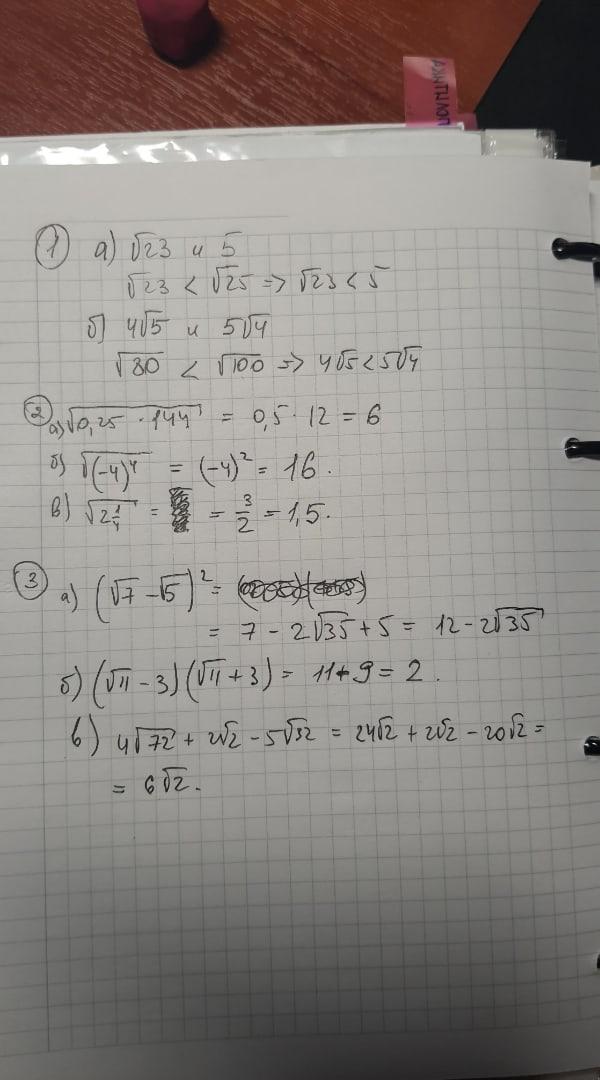 1 а) √23 и 5
√23 < √25 => √23 < 5
б) 4√5 и 5√4
√80 < √100 => 4√5 < 5√4
2 а) √0,25 · 144 = 0,5 · 12 = 6
б) √(-4)⁴ = (-4)² = 16.
в) √2 1/4 = = 3/2 = 1,5.
3 а) (√7 - √5)² =
= 7 - 2√35 + 5 = 12 - 2√35
б) (√11 - 3)(√11 + 3) = 11 - 9 = 2.
в) 4√72 + 2√2 - 5√32 = 24√2 + 2√2 - 20√2 =
= 6√2.